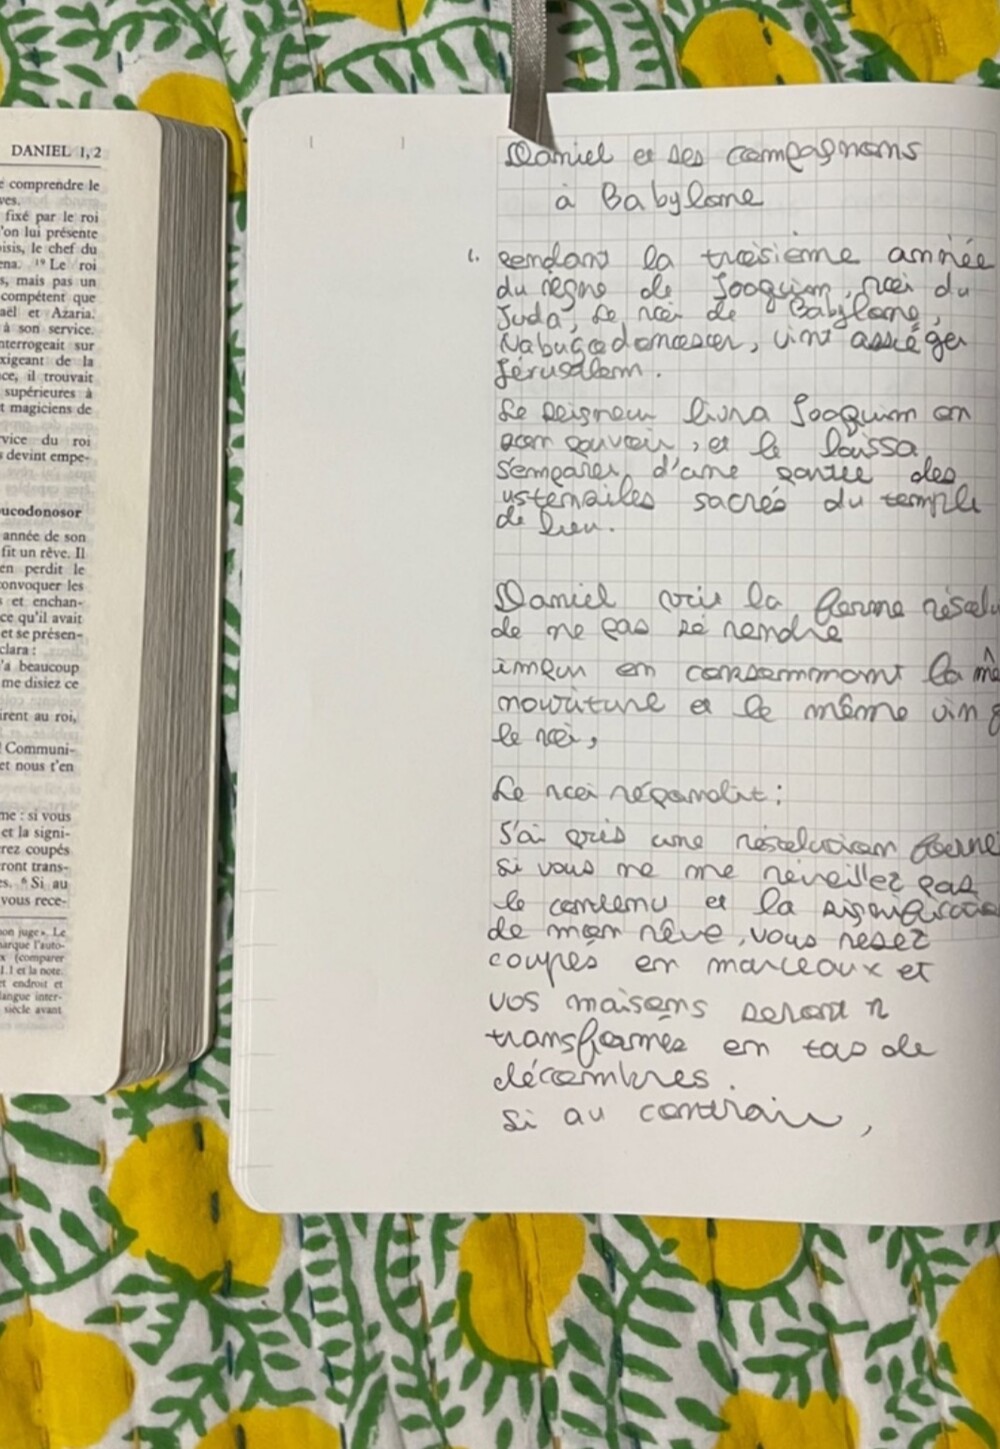 DANIEL 1, 2
comprendre le
ves.
fixé par le roi
'on lui présente
isis, le chef du
ena. 19 Le roi
s, mais pas un
compétent que
aël et Azaria.
à son service.
nterrogeait sur
xigeant de la
ce, il trouvait
supérieures à
t magiciens de
vice du roi
devint empe-
ucodonosor
année de son
fit un rêve. Il
en perdit le
onvoquer les
et enchan-
ce qu'il avait
et se présen-
clara :
'a beaucoup
me disiez ce
irent au roi,
Communi-
et nous t'en
me : si vous
et la signi-
rez coupés
ront trans-
s. 6 Si au
vous rece-
on juge». Le
arque l'auto-
x (comparer
1.1 et la note.
et endroit et
langue inter-
siècle avant
Daniel et ses compagnons
à Babylone
1. Pendant la troisième année
du règne de Joaquim, roi du
Juda, Le roi de Babylone,
Nabucodonosor, vint assiéger
Jérusalem.
Le Seigneur livra Joaquim en
son pouvoir, et le laissa
s'emparer d'une partie des
ustensiles sacrés du temple
de Dieu.
Daniel prit la ferme résolu
de ne pas se rendre
impur en consommant la mê
nourriture et le même vin q
le roi,
Le roi répondit :
J'ai pris une résolution ferme
si vous ne me réveillez pas
le contenu et la signification
de mon rêve, vous serez
coupés en morceaux et
vos maisons seront
transformés en tas de
décombres.
Si au contraire,